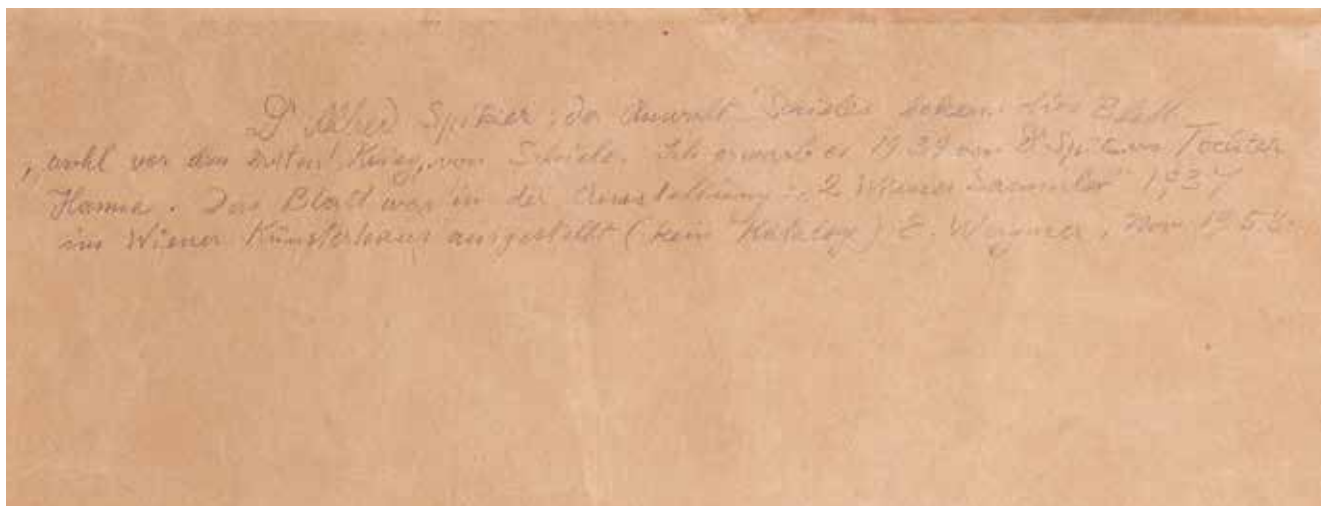 Dr Alfred Spitzer, der Anwalt Schieles bekam dies Blatt
, wohl vor dem ersten Krieg, von Schiele. Ich erwarb es 1934 von Dr Spitzers Tochter
Hanna. Das Blatt war in der Ausstellung "2 Wiener Sammler" 1934
im Wiener Künstlerhaus ausgestellt (kein Katalog) E. Wagner,